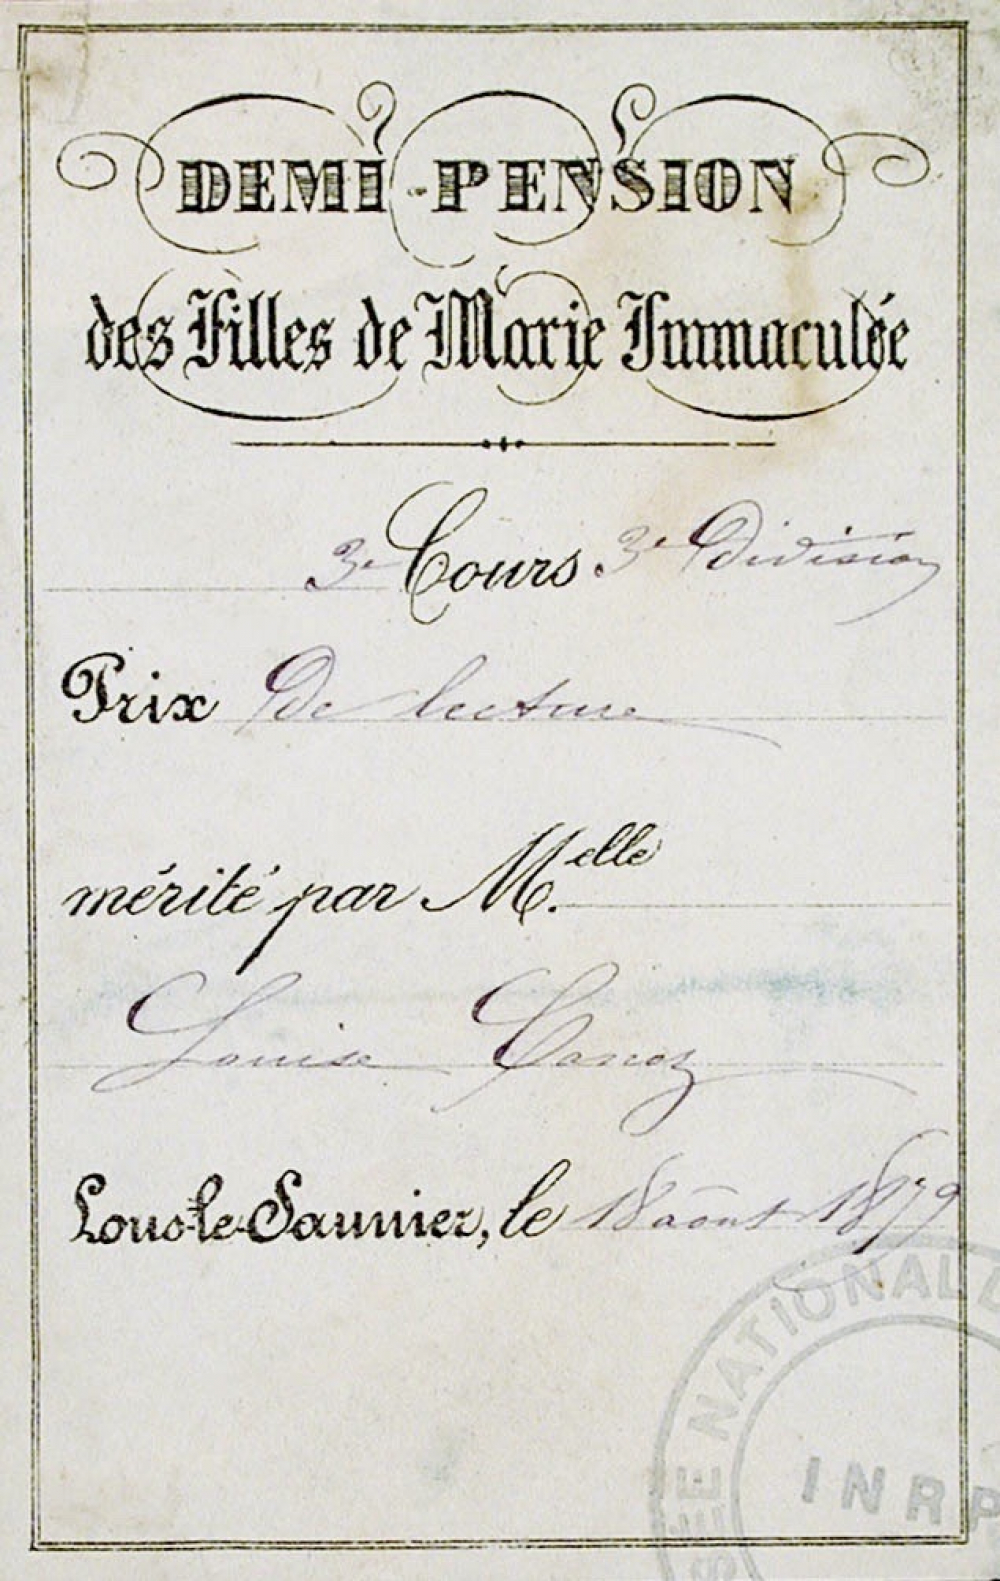 DEMI-PENSION
des Filles de Marie Immaculée
3e Cours 3e Division
Prix De lecture
mérité par Melle
Louise Canoz
Lons-le-Saunier, le 18 août 1879
NATIONALE
INRP